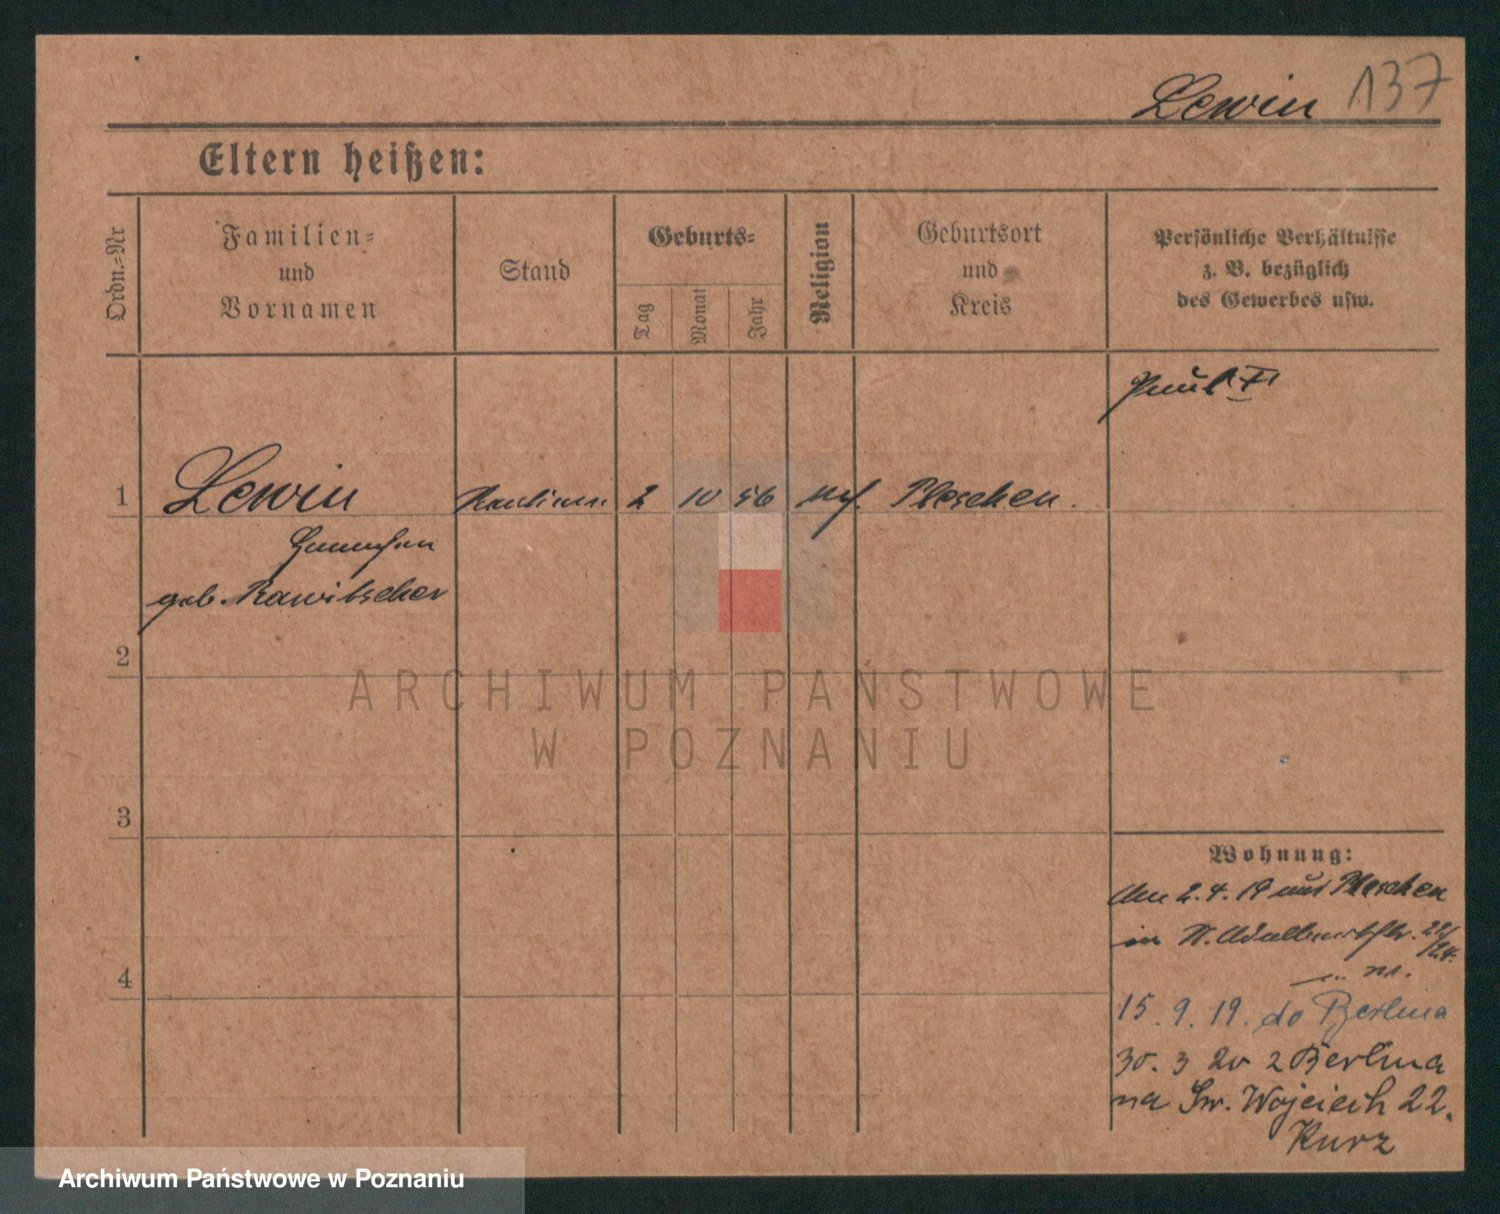 Lewin 137
Eltern heißen:
Ordn.-Nr
Familien-
und
Vornamen
Stand
Geburts-
Tag
Monat
Jahr
Religion
Geburtsort
und
Kreis
Persönliche Verhältnisse
z. B. bezüglich
des Gewerbes usw.
1 Lewin 2 10 56 Pleschen.
geb. Rawitscher
2
3
4
ARCHIWUM PAŃSTWOWE
W POZNANIU
Wohnung:
Am 2.4.19 aus Pleschen
in St. Adalbertstr. 22/24.
15.9.19. do Berlina
30.3 20 z Berlina
na Św. Wojciech 22.
Kurz
Archiwum Państwowe w Poznaniu